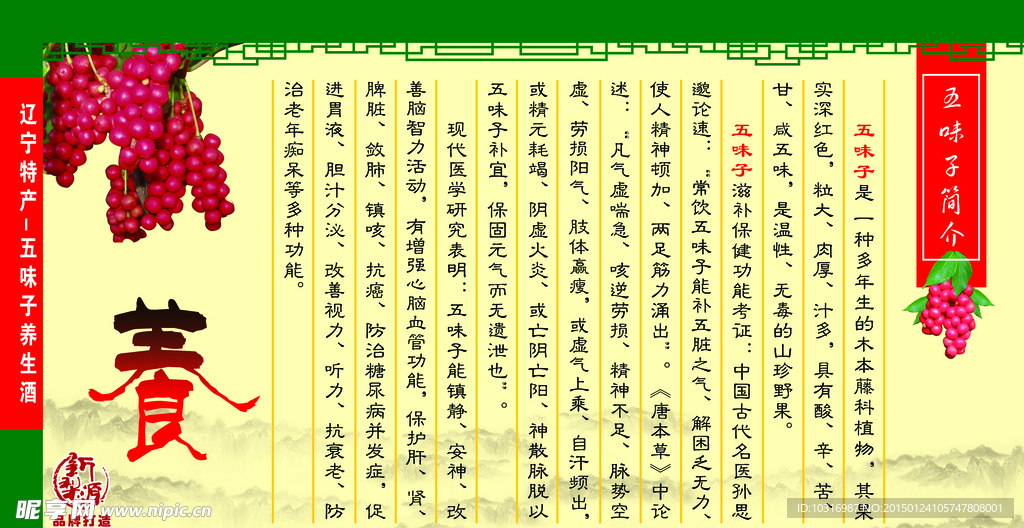 五味子简介
五味子是一种多年生的木本藤科植物，其果
实深红色，粒大、肉厚、汁多，具有酸、辛、苦、
甘、咸五味，是温性、无毒的山珍野果。
五味子滋补保健功能考证：中国古代名医孙思
邈论速：“常饮五味子能补五脏之气、解困乏无力，
使人精神顿加、两足筋力涌出”。《唐本草》中论
述：“凡气虚喘急、咳逆劳损、精神不足、脉势空
虚、劳损阳气、肢体羸瘦，或虚气上乘、自汗频出，
或精元耗竭、阴虚火炎、或亡阴亡阳、神散脉脱以
五味子补宜，保固元气而无遗泄也”。
现代医学研究表明：五味子能镇静、安神、改
善脑智力活动，有增强心脑血管功能，保护肝、肾、
脾脏、敛肺、镇咳、抗癌、防治糖尿病并发症，促
进胃液、胆汁分泌、改善视力、听力、抗衰老、防
治老年痴呆等多种功能。
养
辽宁特产-五味子养生酒
品牌打造
昵享网 www.nipic.cn
www.nipic.com
ID:10316981 NO:20150124105747808001